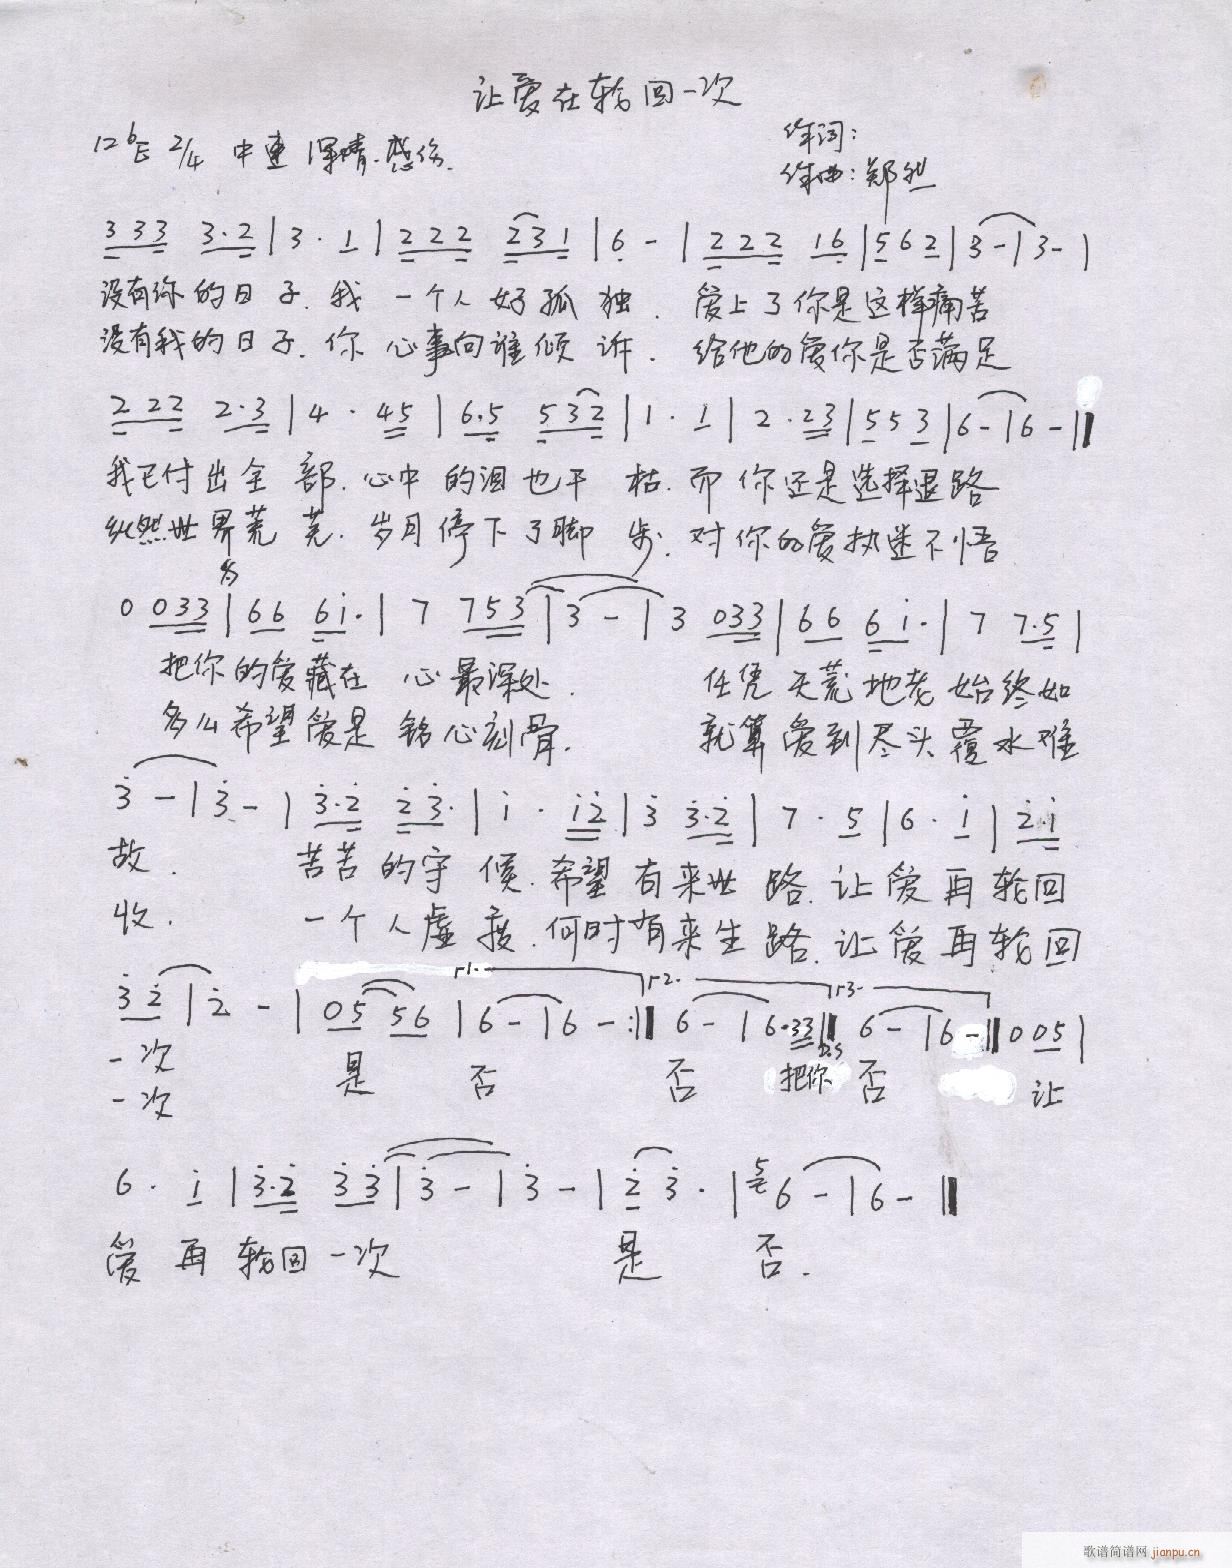 让爱在轮回一次
1=♭E 2/4 中速 深情.感伤.
作词:
作曲:郑然
3 3 3 3·2 | 3·1 | 2 2 2 2 3 1 | 6 - | 2 2 2 1 6 | 5 6 2 | 3 - | 3 - |
没有你的日子.我一个人好孤独.爱上了你是这样痛苦
没有我的日子.你心事向谁倾诉.给他的爱你是否满足
2 2 2 2·3 | 4·4 5 | 6·5 5 3 2 | 1·1 | 2·2 3 | 5 5 3 | 6 - | 6 - ‖
我已付出全部.心中的泪也干枯.而你还是选择退路
纵然世界荒芜.岁月停下了脚步.对你的爱执迷不悟
0 0 3 3 | 6 6 6 i· | 7 7 5 3 | 3 - | 3 0 3 3 | 6 6 6 i· | 7 7·5 |
把你的爱藏在心最深处.任凭天荒地老始终如
多么希望爱是铭心刻骨.就算爱到尽头覆水难
3̇ - | 3̇ - | 3̇·2̇ 2̇ 3̇· | i· i 2̇ | 3̇ 3̇·2̇ | 7·5 | 6·i | 2̇·i
故.苦苦的守候.希望有来世路.让爱再轮回
收.一个人虚度.何时有来生路.让爱再轮回
1. 2. 3.
3̇ 2̇ | 2̇ - | 0 5 5 6 | 6 - | 6 - :‖ 6 - | 6·3 3 ‖ 6 - | 6 - ‖ 0 0 5 |
D.S
一次 是 否 否 把你 否 让
一次
6·i | 3̇·2̇ 3̇ 3̇ | 3̇ - | 3̇ - | 2̇ 3̇· | 5 6 - | 6 - ‖
爱再轮回一次 是 否.
歌谱简谱网 jianpu.cn